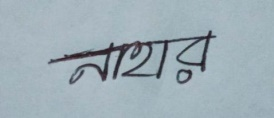 নাহার